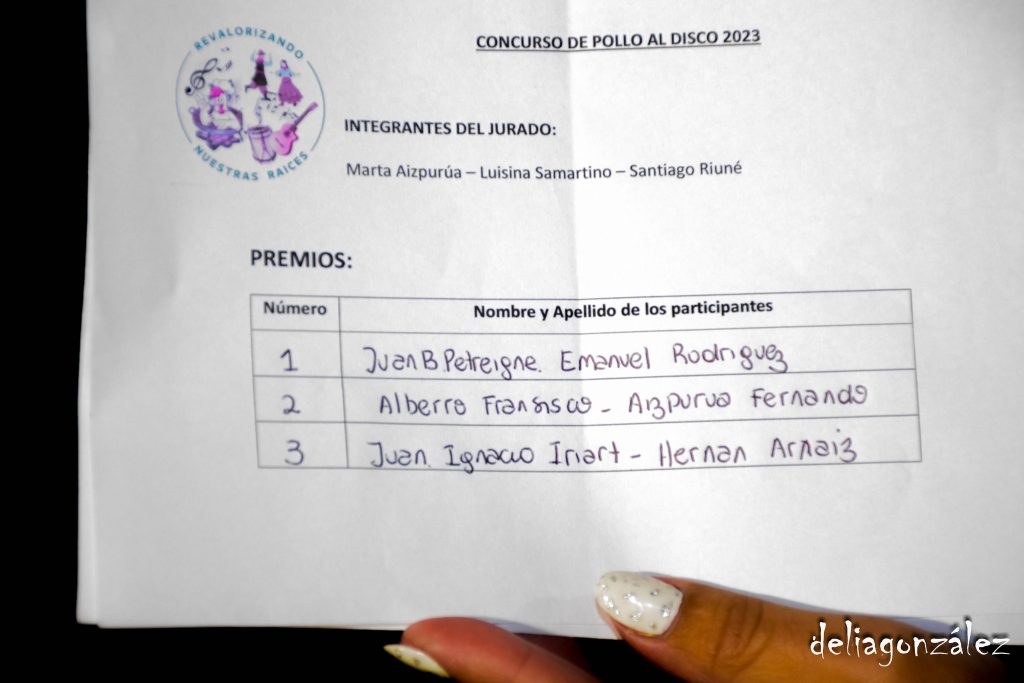 REVALORIZANDO
NUESTRAS RAICES
CONCURSO DE POLLO AL DISCO 2023
INTEGRANTES DEL JURADO:
Marta Aizpurúa – Luisina Samartino – Santiago Riuné
PREMIOS:
Número Nombre y Apellido de los participantes
1 Juan B. Petreigne. Emanuel Rodriguez
2 Alberro Fransisco - Aizpurua Fernando
3 Juan. Ignacio Iriart - Hernan Arnaiz
deliagonzález